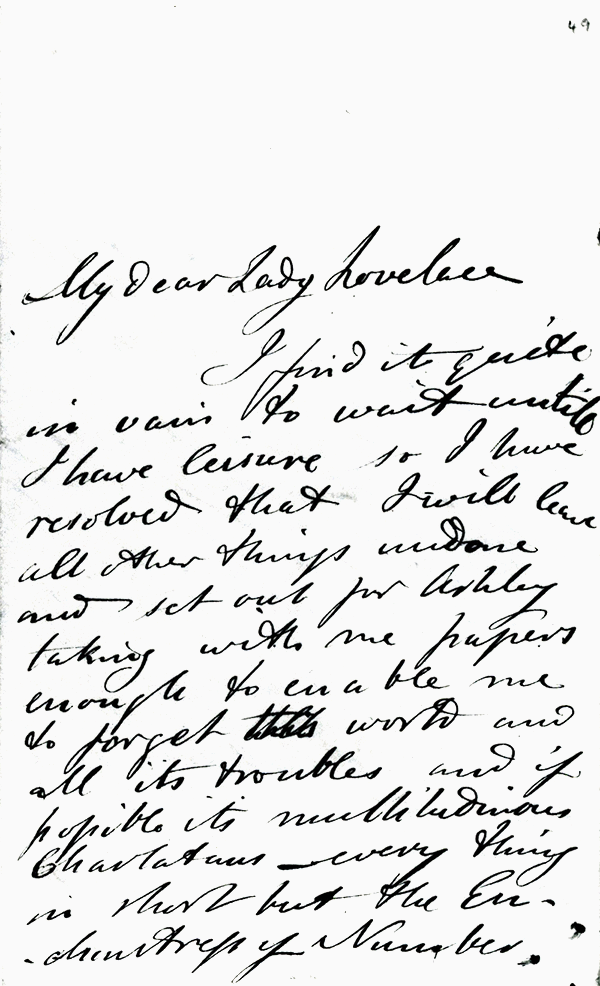 49
My Dear Lady Lovelace
I find it quite
in vain to wait until
I have leisure so I have
resolved that I will leave
all other things undone
and set out for Ashley
taking with me papers
enough to enable me
to forget this world and
all its troubles and if
possible its multitudinous
Charlatans – every thing
in short but the En-
-chantress of Number.